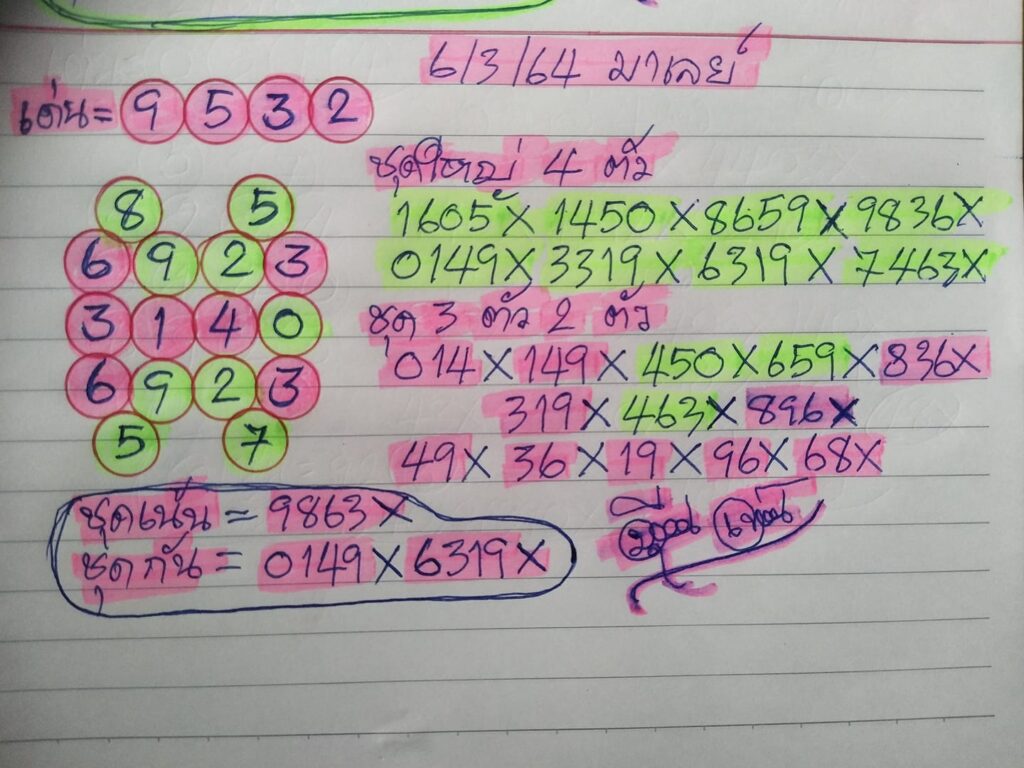 6/3/64 มาเลย์
เด่น= 9 5 3 2
8 5
6 9 2 3
3 1 4 0
6 9 2 3
5 7
ชุดใหญ่ 4 ตัว
1605X 1450X8659X9836X
0149X3319X6319X7463X
ชุด 3 ตัว 2 ตัว
014X149X450X659X836X
319X463X896X
49X36X19X96X68X
ชุดเน้น = 9863X
ชุดกัน = 0149X6319X